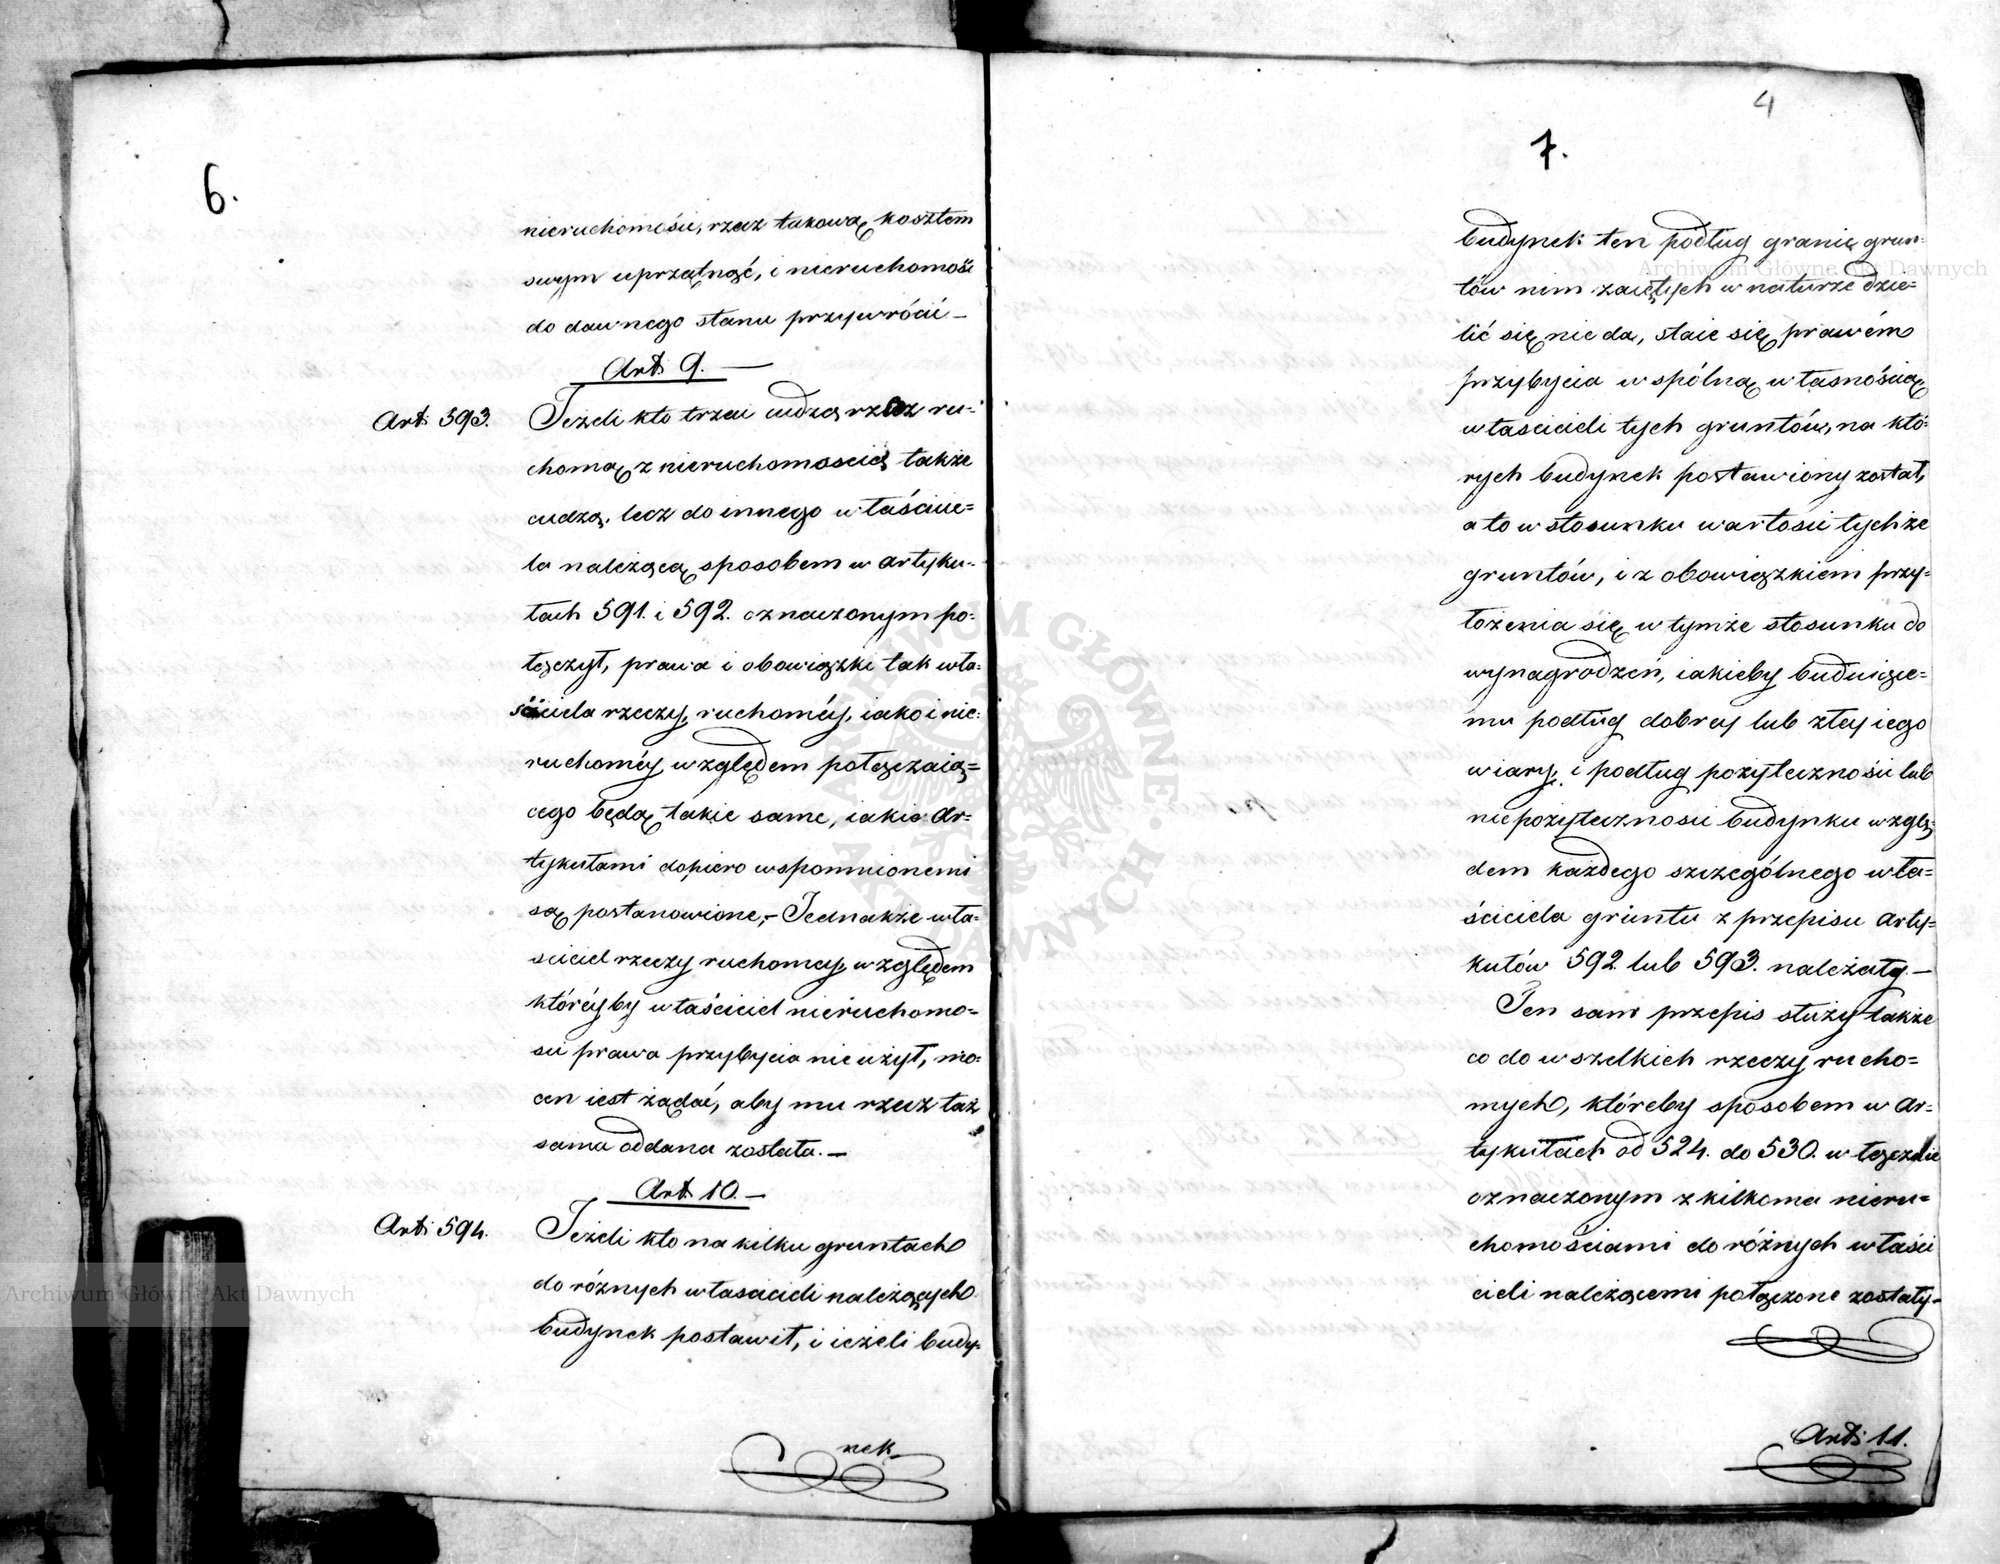 6.
nieruchomości, rzecz takową kosztem
swym uprzątnąć, i nieruchomość
do dawnego stanu przywrócić –
Art: 9. –
Art: 593.
Jeżeli kto trzeci cudzą rzecz ru-
chomą z nieruchomością także
cudzą, lecz do innego właścicie=
la należącą sposobem w artyku-
łach 591. i 592. oznaczonym po-
łączył, prawa i obowiązki tak wła-
ściciela rzeczy ruchoméy, iako i nie-
ruchoméy względem połączaią=
cego będą takie same, iakie ar=
tykułami dopiero wspomnionemi
są postanowione, – Jednakże wła-
ściciel rzeczy ruchomey, względem
któréyby właściciel nieruchomo=
ści prawa przybycia nie użył, mo-
cen iest żądać, aby mu rzecz taż
sama oddana została. –
Art 10. –
Art: 594.
Jeżeli kto na kilku gruntach
do różnych właścicieli należących
budynek postawił, i ieżeli budy-
nek
4
7.
budynek ten podług granic grun-
tów nim zaiętych w naturze dzie-
lić się nie da, staie się prawém
przybycia wspólną własnością
właścicieli tych gruntów, na któ-
rych budynek postawiony został,
a to w stosunku wartości tychże
gruntów, i z obowiązkiem przy=
łożenia się w tymże stosunku do
wynagrodzeń, iakieby buduiące=
mu podług dobrey lub złey iego
wiary, i podług pożyteczności lub
niepożyteczności budynku wzglę-
dem każdego szczególnego wła=
ściciela gruntu z przepisu arty=
kułów 592. lub 593. należały. –
Ten sam przepis służy także
co do wszelkich rzeczy rucho=
mych, któreby sposobem w ar=
tykułach od 524. do 530. włącznie
oznaczonym z kilkoma nieru=
chomościami do różnych właści
cieli należącemi połączone zostały –
Art: 11.
Archiwum Główne Akt Dawnych
Archiwum Główne Akt Dawnych
ARCHIWUM GŁÓWNE AKT DAWNYCH